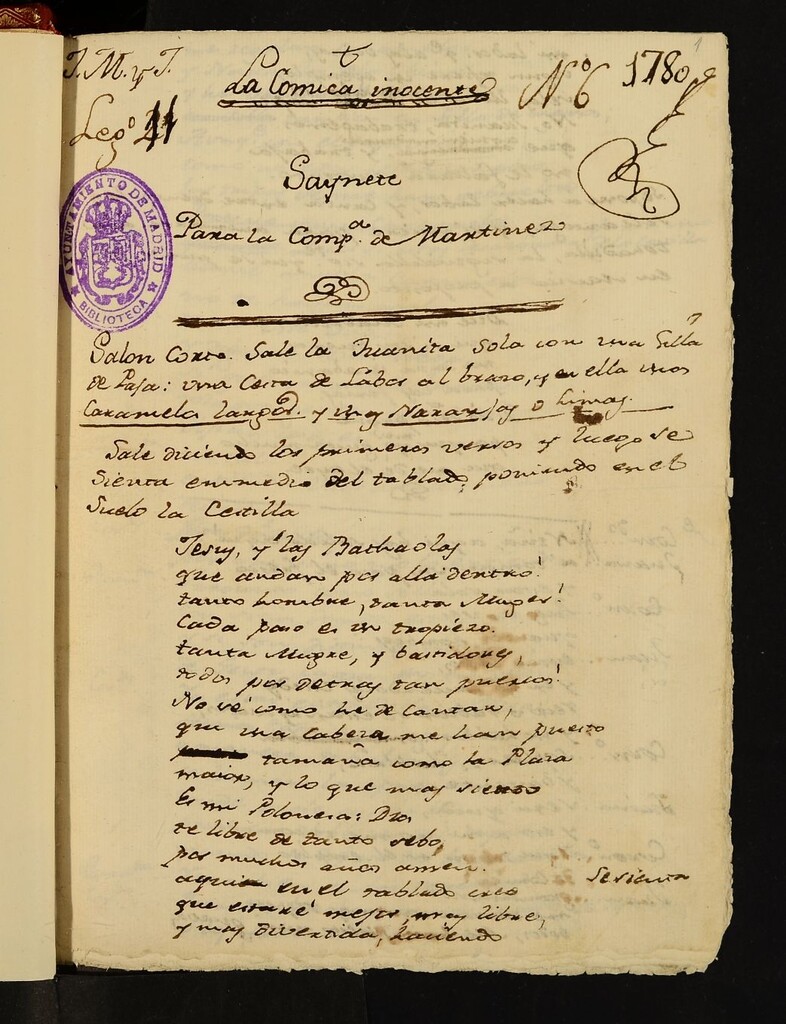 J. M. y J.
La Comica inocente
Nº 6 1780
Legº 21
Saynete
Para la Compª de Martinez
AYUNTAMIENTO DE MADRID
BIBLIOTECA
Salon Corto. Sale la Juanita Sola con una Silla
de Paja: una Cesta de Labor al brazo, y en ella unos
Caramelos largos. y unas Naranjas o Limas.
Sale diciendo los primeros versos y luego se
Sienta enmedio del tablado, poniendo en el
Suelo la Cestilla
Jesus, y las
que andan por alla dentro!
tanto hombre, tanta Muger!
Cada paso es un tropiezo.
tanta Mugre, y bastidores,
todos por detras tan puercos!
No sé como he de Cantar,
que una Cabeza me han puesto
tamaña como la Plaza
maior, y lo que mas siento
Es mi Polonesa: Dios
te libre de tanto sebo,
por muchos años amen.
aqui en el tablado creo
Se sienta
que estaré mejor, mas libre,
y mas divertida, haciendo